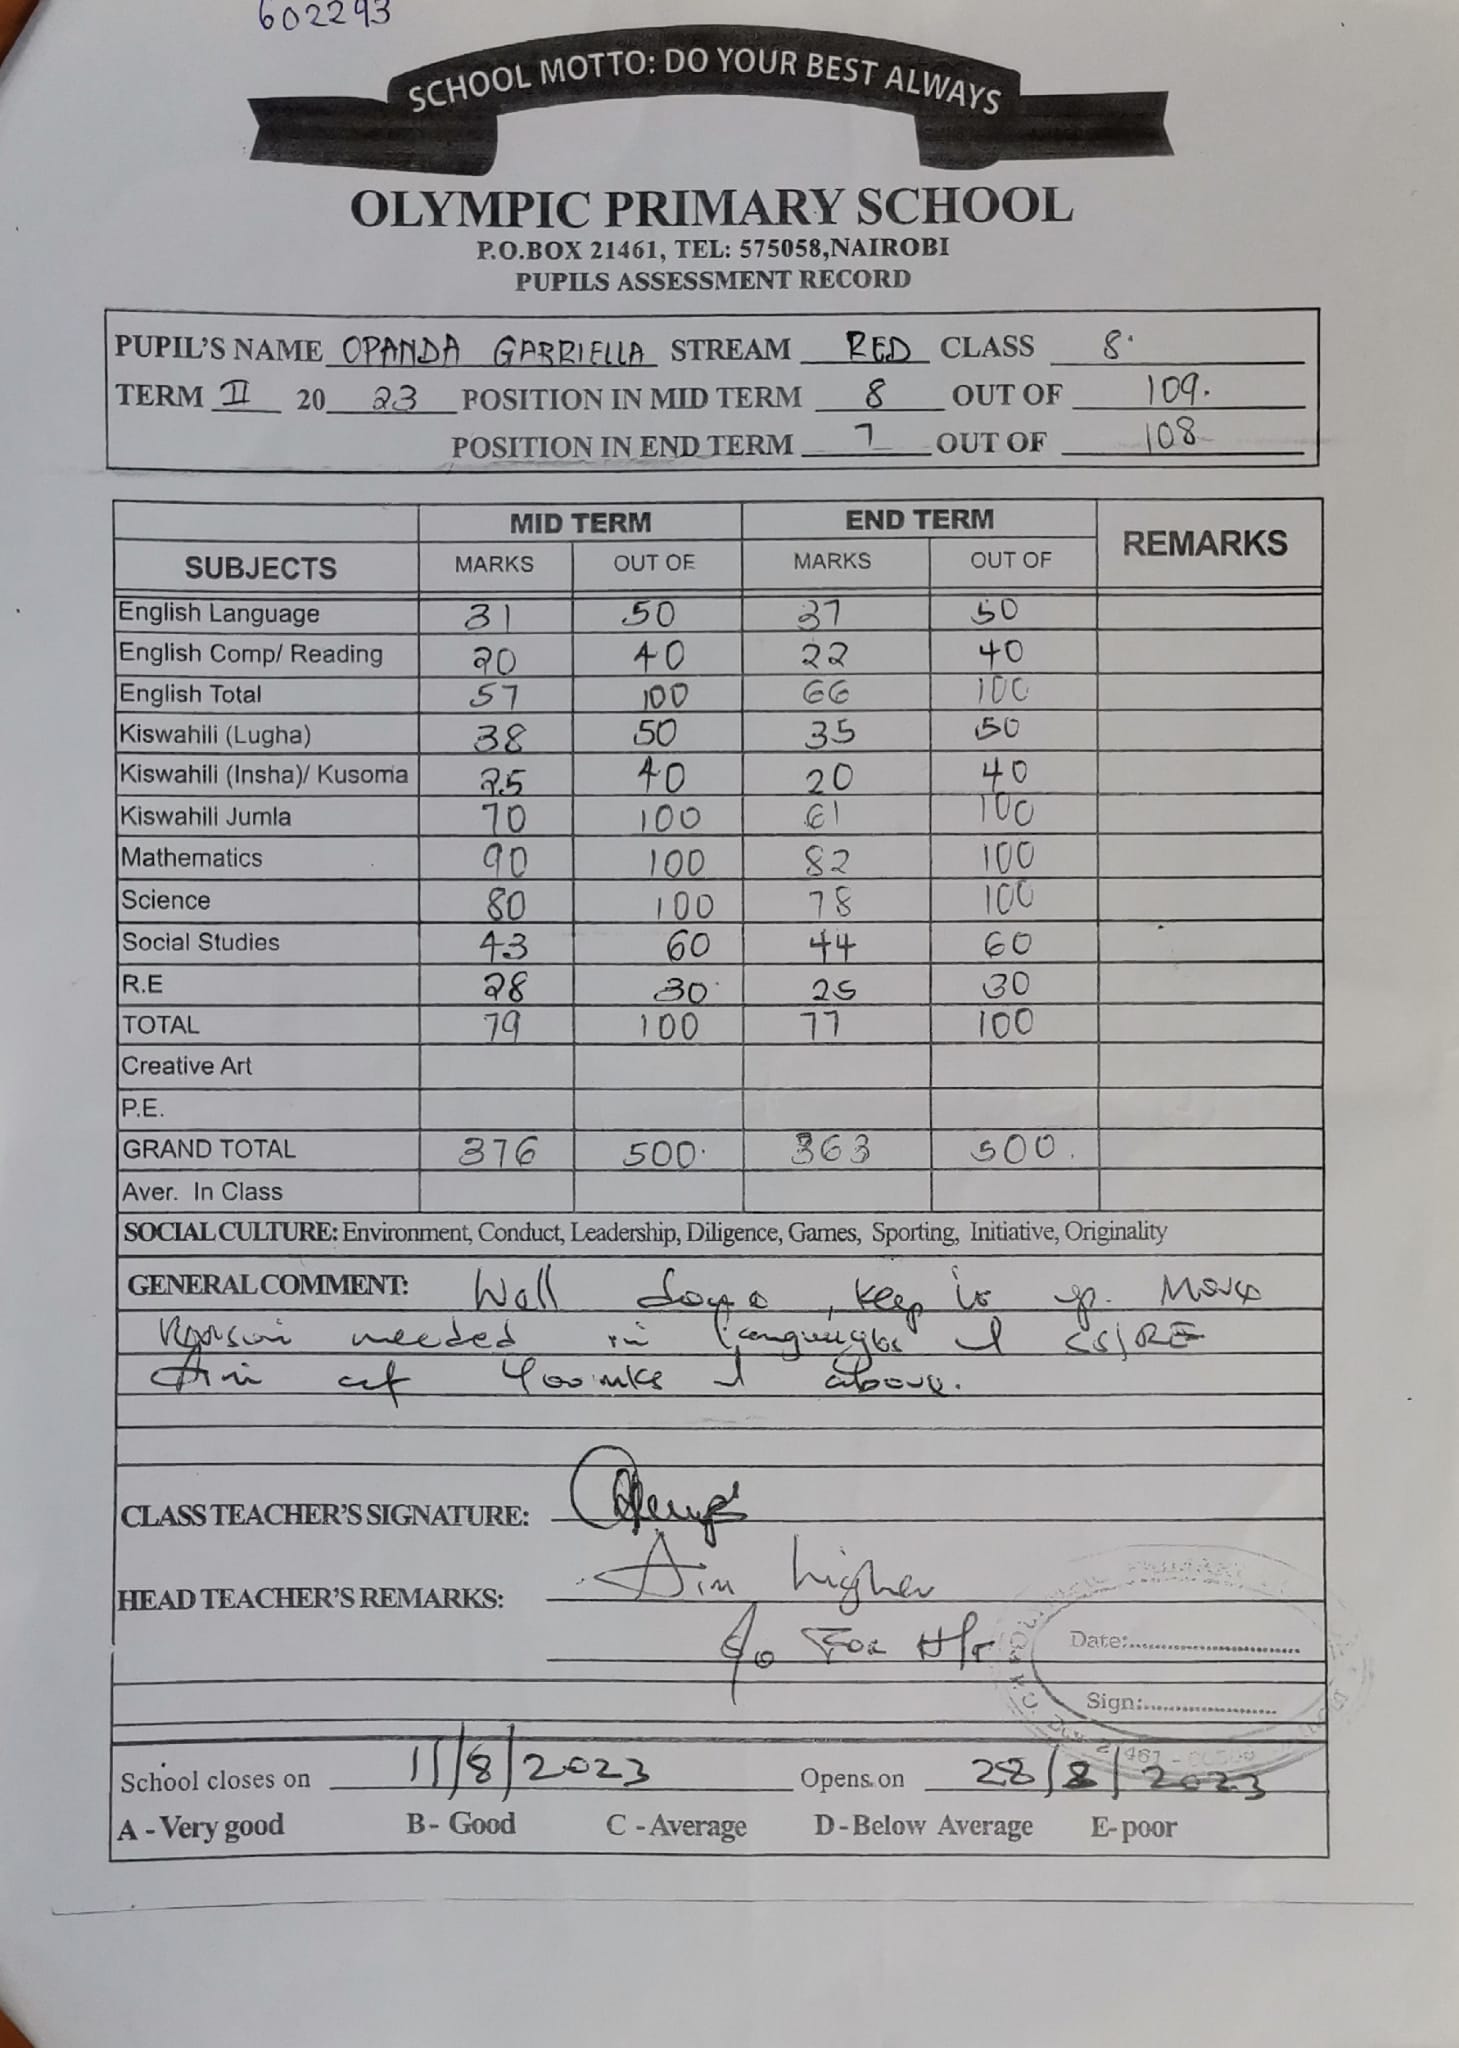 602293
SCHOOL MOTTO: DO YOUR BEST ALWAYS
OLYMPIC PRIMARY SCHOOL
P.O.BOX 21461, TEL: 575058,NAIROBI
PUPILS ASSESSMENT RECORD
PUPIL'S NAME OPANDA GABRIELLA STREAM RED CLASS 8.
TERM II 20 23 POSITION IN MID TERM 8 OUT OF 109.
POSITION IN END TERM 7 OUT OF 108
MID TERM END TERM REMARKS
SUBJECTS MARKS OUT OF MARKS OUT OF
English Language 31 50 37 50
English Comp/ Reading 20 40 22 40
English Total 57 100 66 100
Kiswahili (Lugha) 38 50 35 50
Kiswahili (Insha)/ Kusoma 25 40 20 40
Kiswahili Jumla 70 100 61 100
Mathematics 90 100 82 100
Science 80 100 78 100
Social Studies 43 60 44 60
R.E 28 30 25 30
TOTAL 79 100 77 100
Creative Art
P.E.
GRAND TOTAL 376 500. 363 500.
Aver. In Class
SOCIAL CULTURE: Environment, Conduct, Leadership, Diligence, Games, Sporting, Initiative, Originality
GENERAL COMMENT: Well done, keep it up. More
needed in languages & SS/RE
Aim at 400 mks & above.
CLASS TEACHER'S SIGNATURE:
HEAD TEACHER'S REMARKS: Aim higher
For H/T
Date:
Sign:
School closes on 11/8/2023 Opens on 28/8/2023
A - Very good B- Good C - Average D-Below Average E-poor